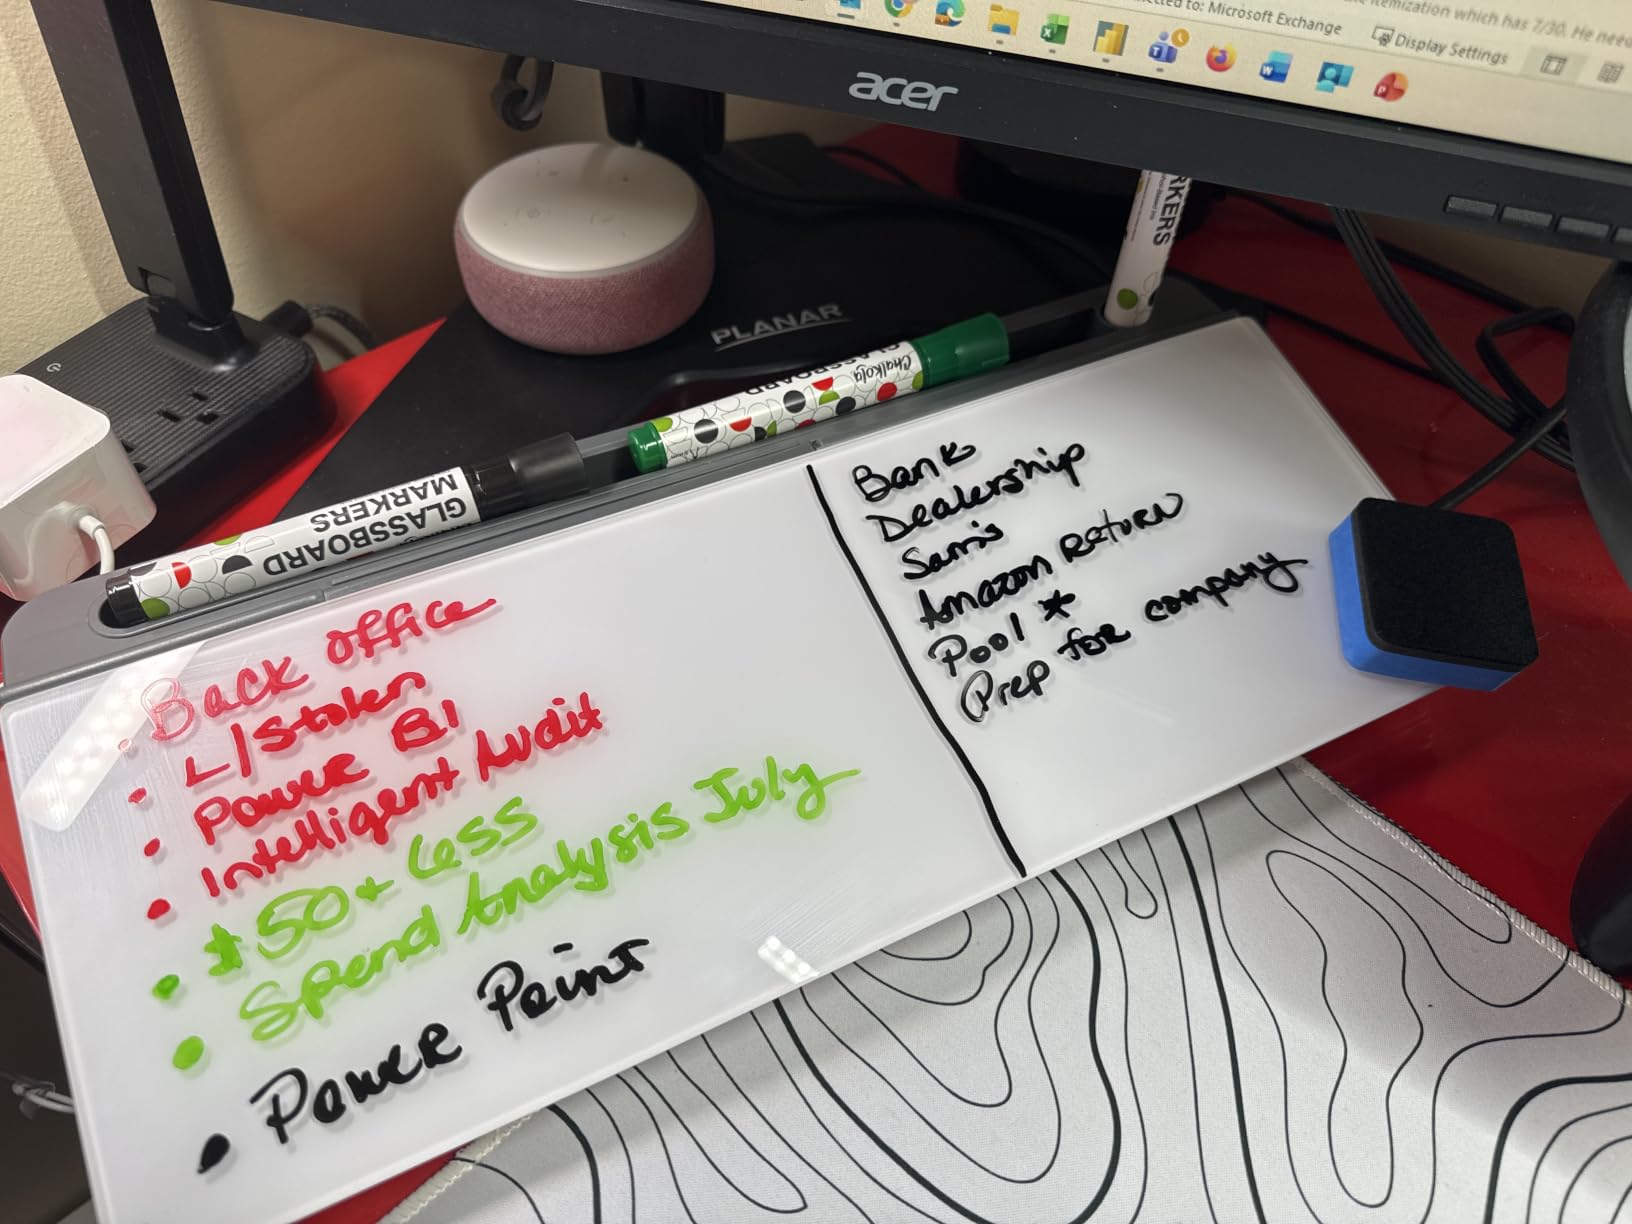 itemization which has 7/30. He need
Connected to: Microsoft Exchange
Display Settings
acer
PLANAR
MARKERS
Chalkola
GLASSBOARD
GLASSBOARD
MARKERS
• Back office
• L/Stolen
• Power BI
• Intelligent Audit
• $50+ Less
• Spend Analysis July
• Power Point
Bank
Dealership
Sam's
Amazon Return
Pool *
Prep for company